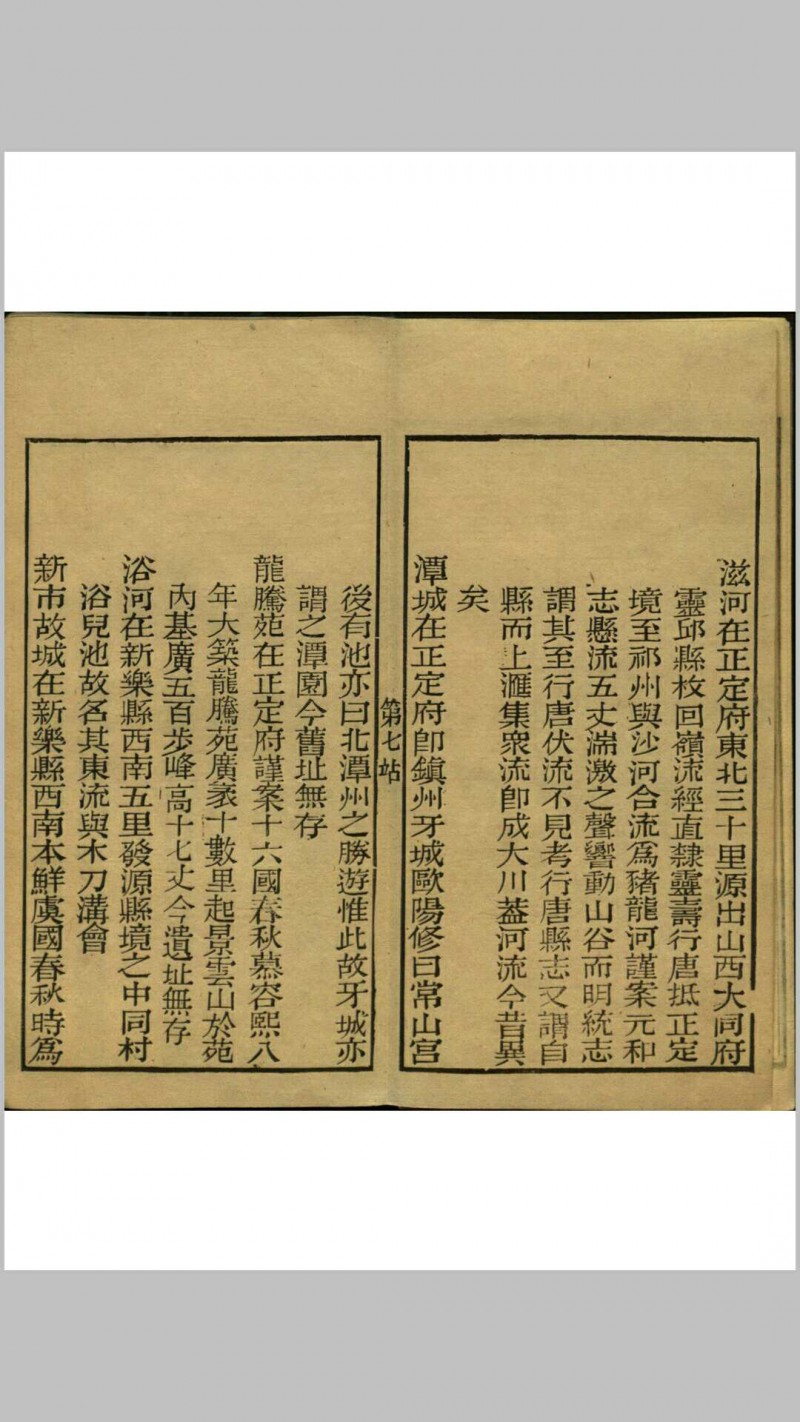 滋河在正定府東北三十里源出山西大同府
靈邱縣枚回嶺流經直隸靈壽行唐抵正定
境至祁州與沙河合流爲豬龍河謹案元和
志懸流五丈湍激之聲響動山谷而明統志
謂其至行唐伏流不見考行唐縣志又謂自
縣而上滙集衆流卽成大川葢河流今昔異
矣
潭城在正定府卽鎮州牙城歐陽修曰常山宮
第七站
後有池亦曰北潭州之勝遊惟此故牙城亦
謂之潭園今舊址無存
龍騰苑在正定府謹案十六國春秋慕容熙八
年大築龍騰苑廣袤十數里起景雲山於苑
內基廣五百步峰高十七丈今遺址無存
浴河在新樂縣西南五里發源縣境之中同村
浴兒池故名其東流與木刀溝會
新市故城在新樂縣西南本鮮虞國春秋時爲